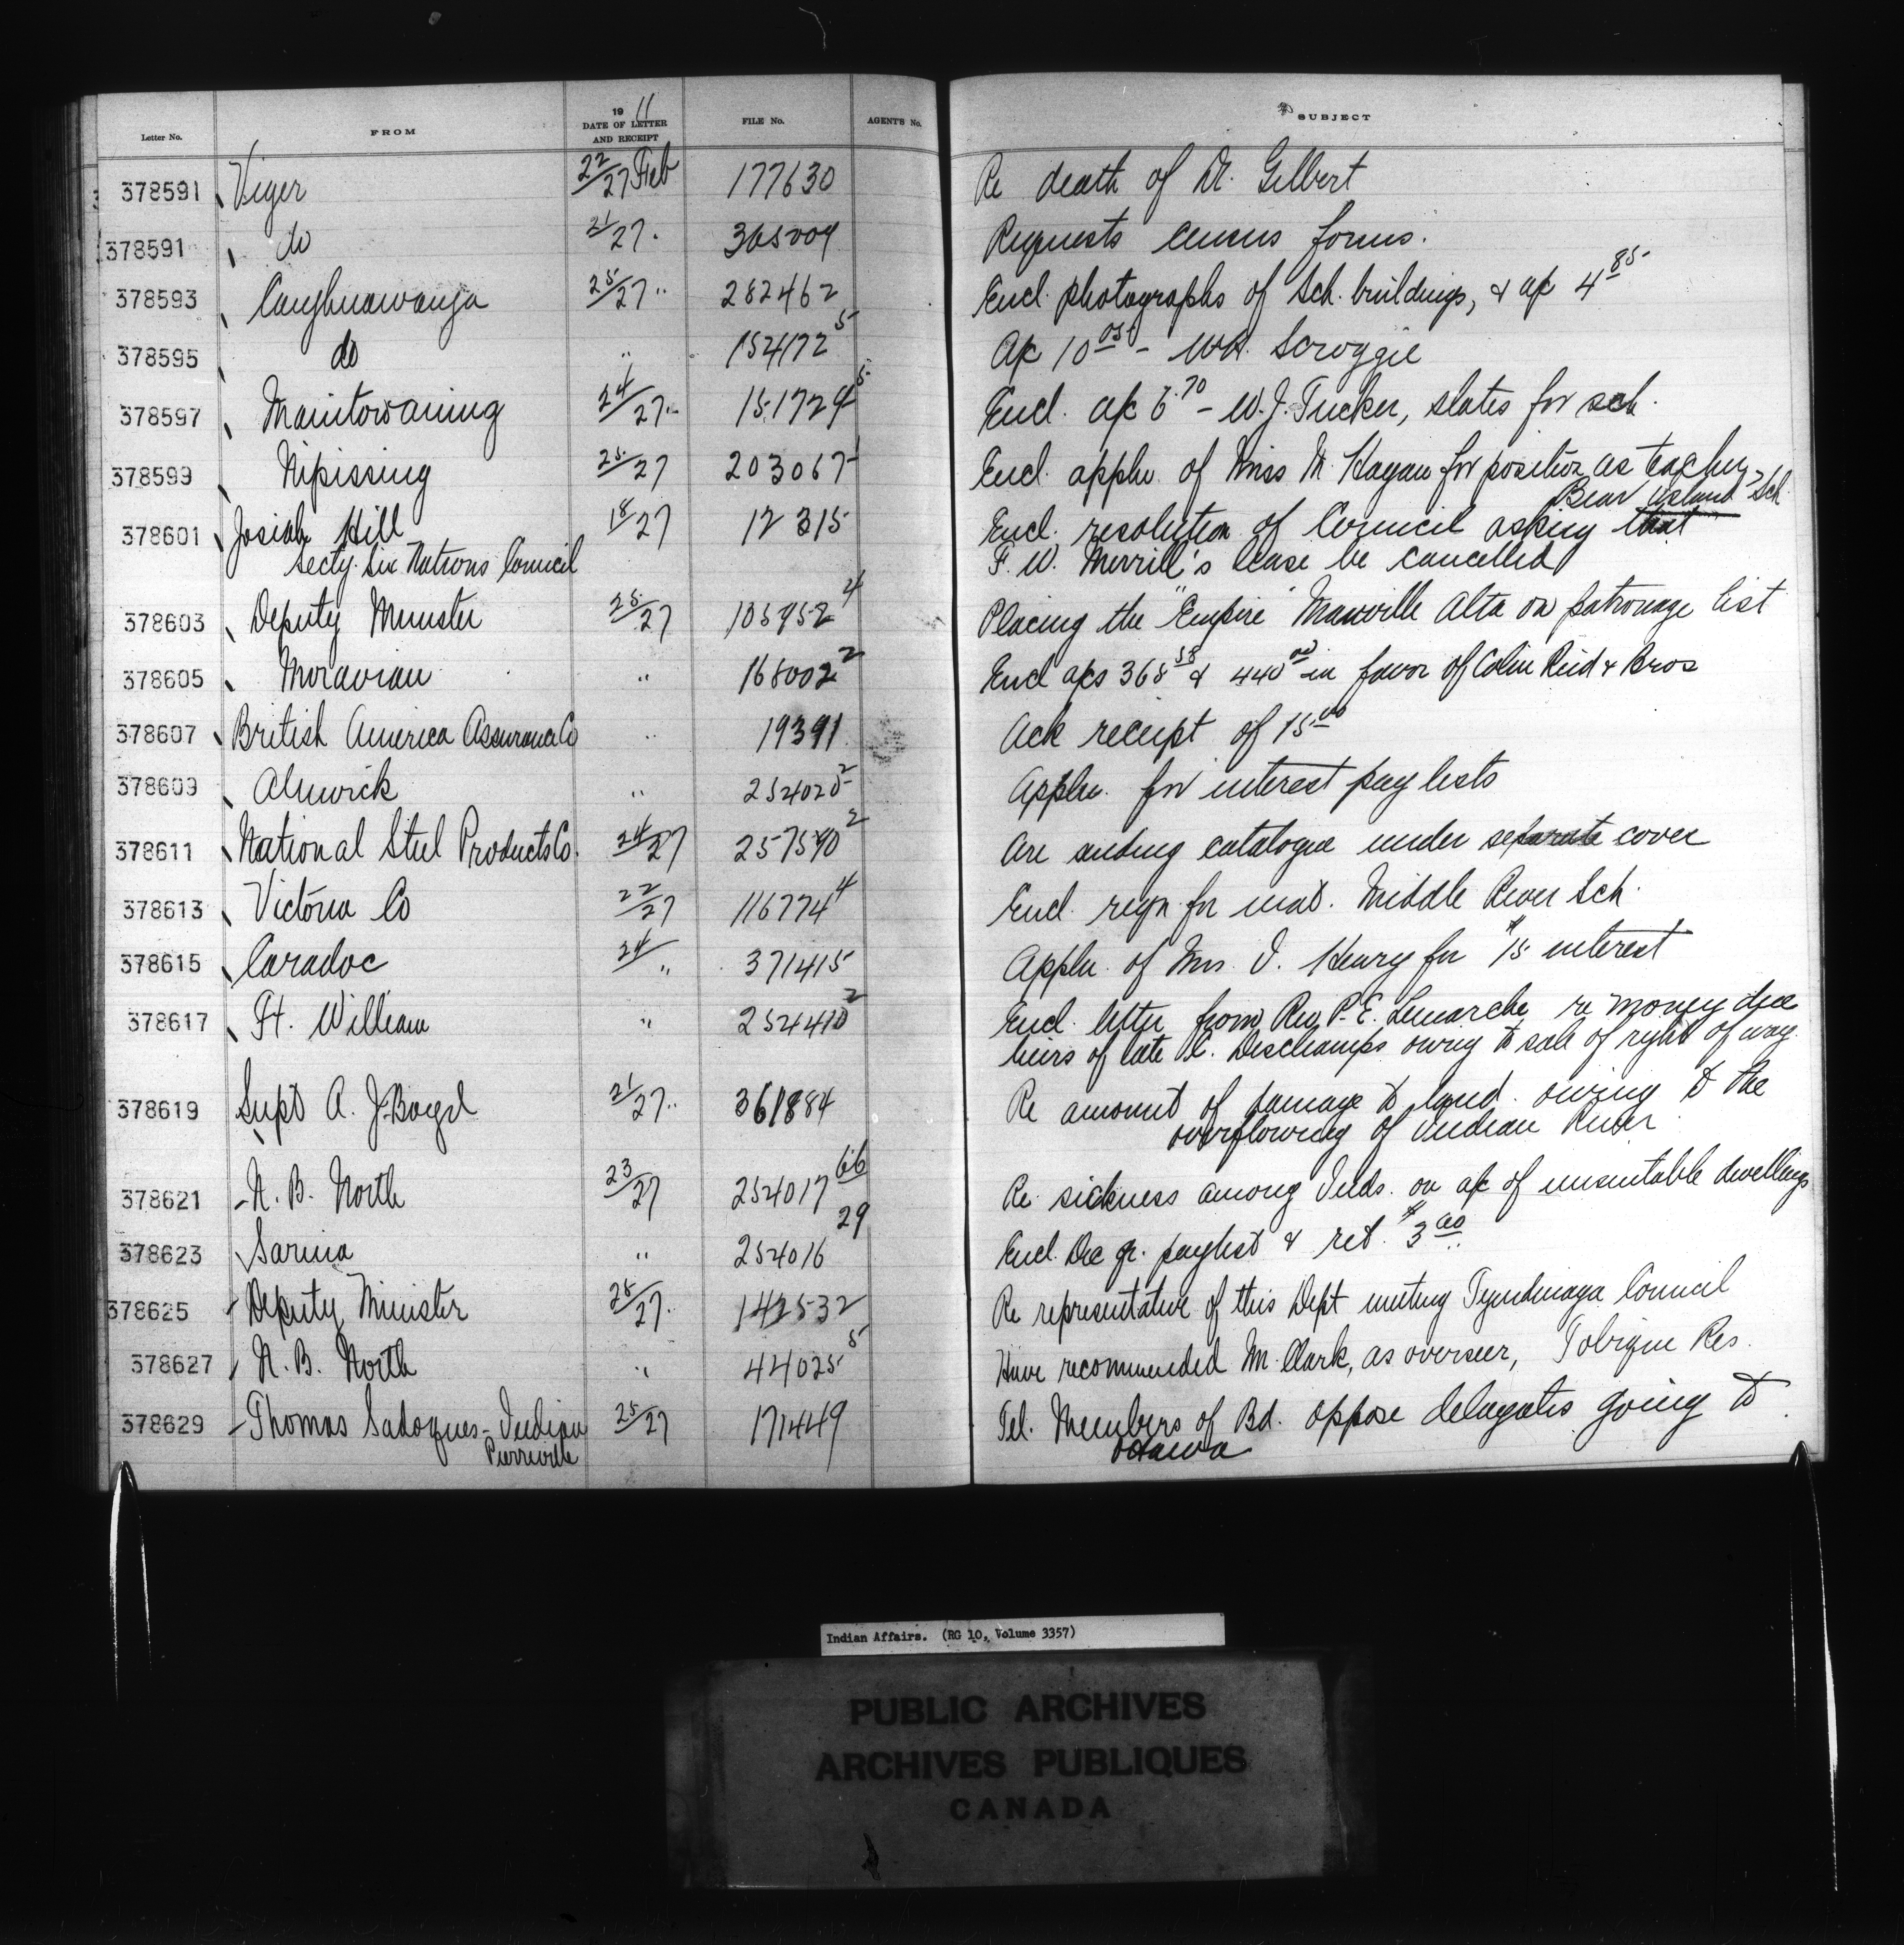 Letter No. FROM 19 11 DATE OF LETTER AND RECEIPT FILE No. AGENT'S No. SUBJECT
378591 Viger 22/27 Feb 177630 Re death of Dr. Gilbert
378591 do 21/27 " Requests census forms.
378593 Caughnawauga 25/27 " 282462 Encl. photographs of Sch. buildings, & a/c 4 85
378595 do " 154172 5 A/c 10 05 - Scroggie
378597 Manitowaning 24/27 " 151729 5 Encl. a/c 6 70 - W. J. Tucker, slates for sch.
378599 Nipissing 25/27 203067-1 Encl. appln. of Miss M. Hagan for position as teacher Bear Island Sch.
378601 Josiah Hill 18/27 12315 Encl. resolution of Council asking that
Secty. Six Nations Council F. W. Merrill's lease be cancelled
378603 Deputy Minister 25/27 105952 4 Placing the "Empire" Manville Alta on patronage list
378605 Moravian " 168002 2 Encl a/cs 368 58 & 440 00 in favor of Colin Reid & Bros
378607 British America Assurance Co " 19391 Ack receipt of 15 00
378609 Alnwick " 254020 2 Appln. for interest pay lists
378611 National Steel Products Co. 24/27 257590 2 Are sending catalogue under separate cover
378613 Victoria Co 22/27 116774 4 Encl. reqn. for mat. Middle River Sch.
378615 Caradoc 24/" 371415 Appln. of Mrs. J. Henry for $15 interest
378617 Ft. William " 254410 2 Encl. letter from Rev. P. E. Lamarche re money due
heirs of late X. Deschamps owing to sale of right of way.
378619 Supt A. J. Boyd 21/27 " 361884 Re amount of damage to land owing to the
overflowing of Indian River
378621 N. B. North 23/27 254017 66 Re sickness among Inds. on a/c of unsuitable dwellings
378623 Sarnia " 254016 29 Encl. Dec qr. paylist & ret. $3 00
378625 Deputy Minister 25/27. 142532 Re representative of this Dept meeting Tyendinaga Council
378627 N. B. North " 44025 5 Have recommended M. Clark, as overseer, Tobique Res.
378629 Thomas Sadoques - Indian 25/27 171449 Tel. Members of Bd. oppose delegates going to
Pierreville Ottawa
Indian Affairs. (RG 10, Volume 3357)
PUBLIC ARCHIVES
ARCHIVES PUBLIQUES
CANADA